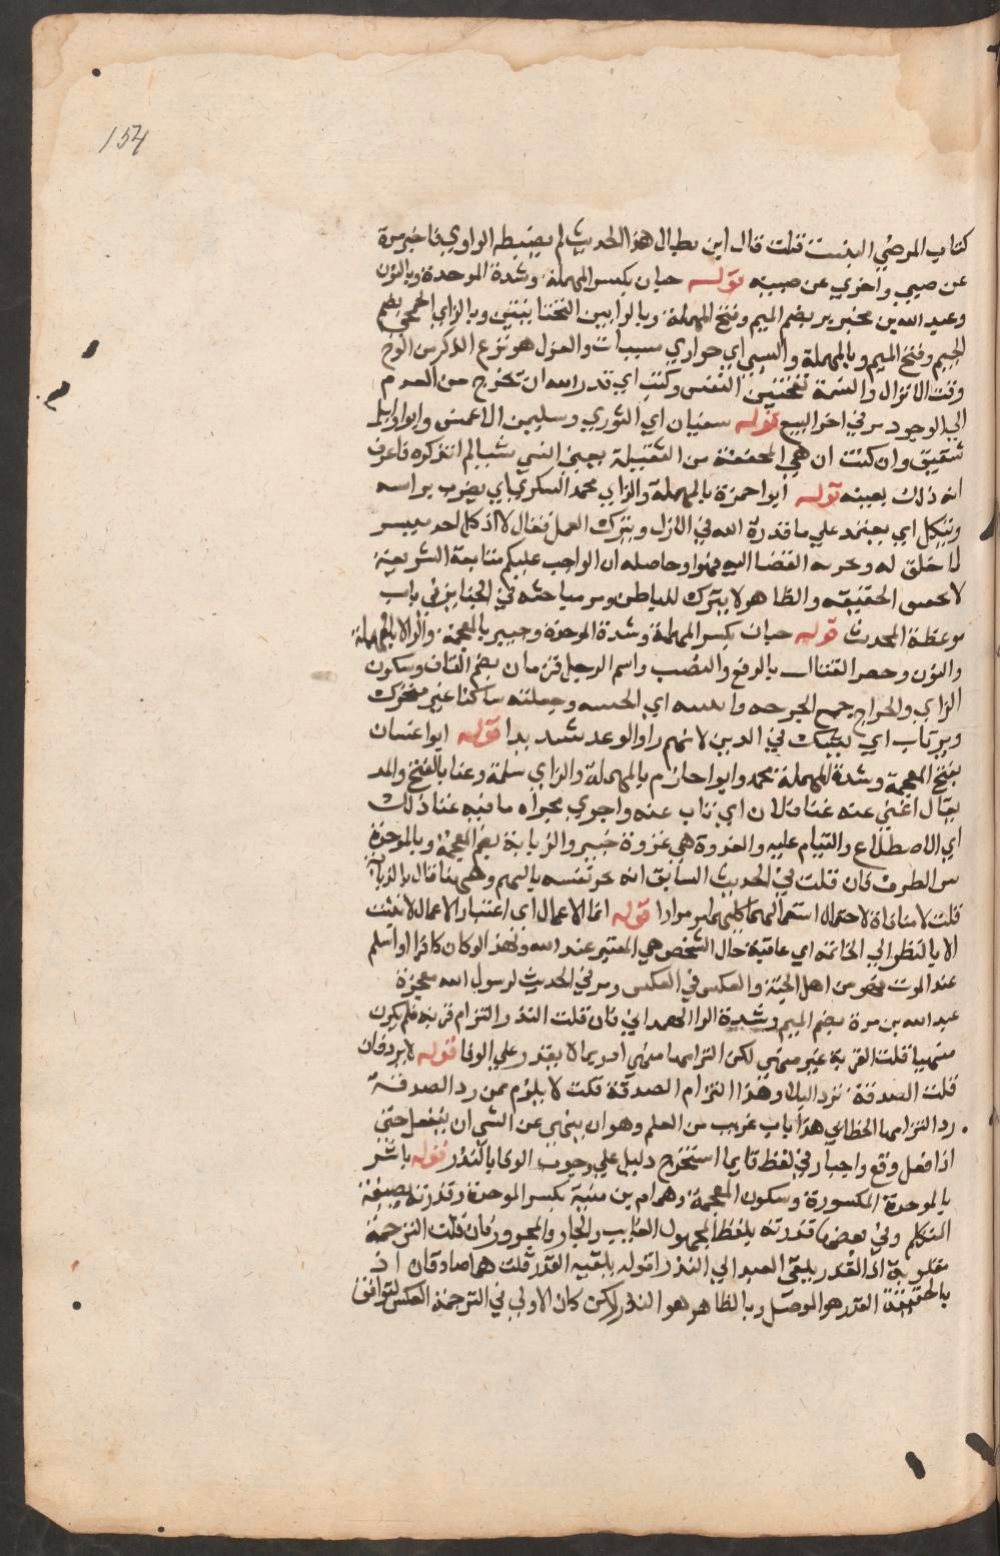 154
كتاب المرضي البتت قلت قال ابن بطال هذا الحديث لم يضبطه الراوي فاخبر مرة
عن صبي واخري عن صبيه قوله حبان بكسر المهملة وشدة الموحدة وبالنون
وعبد الله بن محيريز بضم الميم وفتح المهملة وبالرا بين التحتانيتين وبالزاي الجمحي بضم
الجيم وفتح الميم وبالمهملة والسبي اي جواري مسبيات والعزل هو نزع الذكر من الفرج
وقت الانزال والنسمة بفتحتين النفس وكتب اي قدر الله ان تخرج من العدم
الي الوجود مر في اخر البيع قوله سفيان اي الثوري وسليمن الاعمش وابو وايل
شقيق وان كنت ان هي المخففة من الثقيلة يعني انسي شيا لم اتذكره فاعرف
انه ذلك بعينه قوله ابو حمزة بالمهملة والزاي محمد السكري اي يضرب براسه
ونتكل اي يعتمد علي ما قدره الله في الازل ويترك العمل فقال لا اذ كل احد ميسر
لما خلق له وحاصله ان الواجب عليكم متابعة الشريعة
لا الحقيقه والظاهر لا يترك للباطن ومر مباحثه في الجنايز في باب
موعظة المحدث قوله حبان بكسر المهملة وشدة الموحدة وخيبر بالمعجمة والرا لا بالمهملة
والنون وحضر القتال بالرفع والنصب واسم الرجل قزمان بضم القاف وسكون
الزاي والجراح جمع الجرحه واثبته اي اثخنته وجعلته ساكنا غير متحرك
ويرتاب اي يشك في الدين لانهم راوا الوعد شديدا قوله ابو غسان
بفتح المعجمة وشدة المهملة محمد وابو حازم بالمهملة والزاي سلمة وغنا بالفتح والمد
يقال اغني عنه غنا فلان اي ناب عنه واجري مجراه ما فيه غنا ذلك
اي الاضطلاع والقيام عليه والغزوة هي غزوة خيبر والذبابة بضم المعجمة وبالموحدة
من الطرف فان قلت في الحديث السابق انه نحر نفسه بالسهم وههنا قال بالذبابة
قلت لا منافاة لاحتمال استعمالهما كليهما مر مرارا قوله انما الاعمال اي اعتبار الاعمال لا يثبت
الا بالنظر الي الخاتمه اي عاقبة حال الشخص هي المعتبر عند الله ولهذا لو كان كافرا واسلم
عند الموت فهو من اهل الجنة والعكس في العكس ومر في الحديث لرسول الله معجزة
عبد الله بن مرة بضم الميم وشدة الرا الهمداني فان قلت النذر التزام قربه فلم يكون
منهيا قلت القربة غير منهي لكن التزامها منهي اذ ربما لا يقدر علي الوفا قوله لا يرد فان
قلت الصدقة ترد البلا وهذا التزام الصدقة قلت لا يلزم من رد الصدقة
رد التزامها الخطابي هذا باب غريب من العلم وهو ان ينهي عن الشي ان يفعل حتي
اذا فعل وقع واجبا وفي لفظ قايما استخرج دليل علي وجوب الوفا بالنذر قوله باشر
بالموحدة المكسورة وسكون المعجمة وهمام بن منبه بكسر الموحدة وقدرته بصيغة
التكلم وفي بعضها قدرته بلفظ المجهول الغايب والجار والمجرور فان قلت الترجمة
مقلوبة اذ القدر يلقي العبد الي النذر لقوله يلقيه القدر قلت هما صادقان اذ
بالحقيقة القدر هو الموصل وبالظاهر هو النذر لكن كان الاولي في الترجمة العكس لتوافق